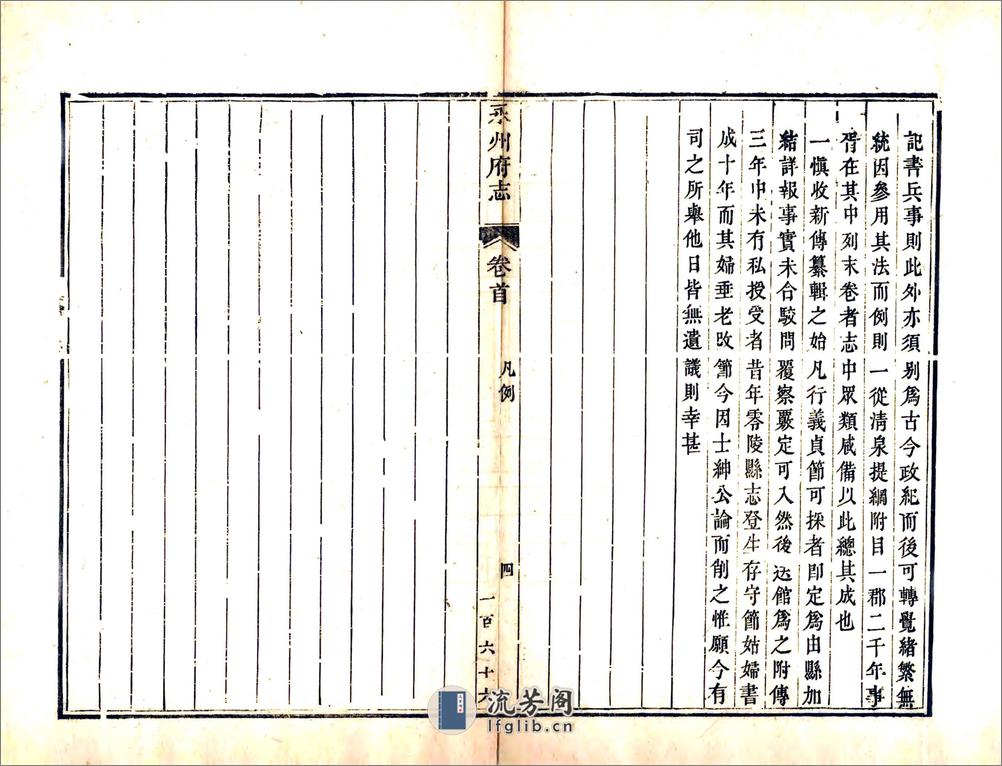 記書兵事則此外亦須別爲古今政紀而後可轉覺緒繁無
統因參用其法而例則一從清泉提綱附目一郡二千年事
胥在其中列末卷者志中眾類咸備以此總其成也
一愼收新傳纂輯之始凡行義貞節可採者卽定爲由縣加
結詳報事實未合駮問覆察覈定可入然後送館爲之附傳
三年中未有私授受者昔年零陵縣志登生存守節姑婦書
成十年而其婦垂老改節今因士紳公論而削之惟願今有
司之所舉他日皆無遺議則幸甚
永州府志
卷首
凡例
四
一百六十六
流芳阁
lfglib.cn